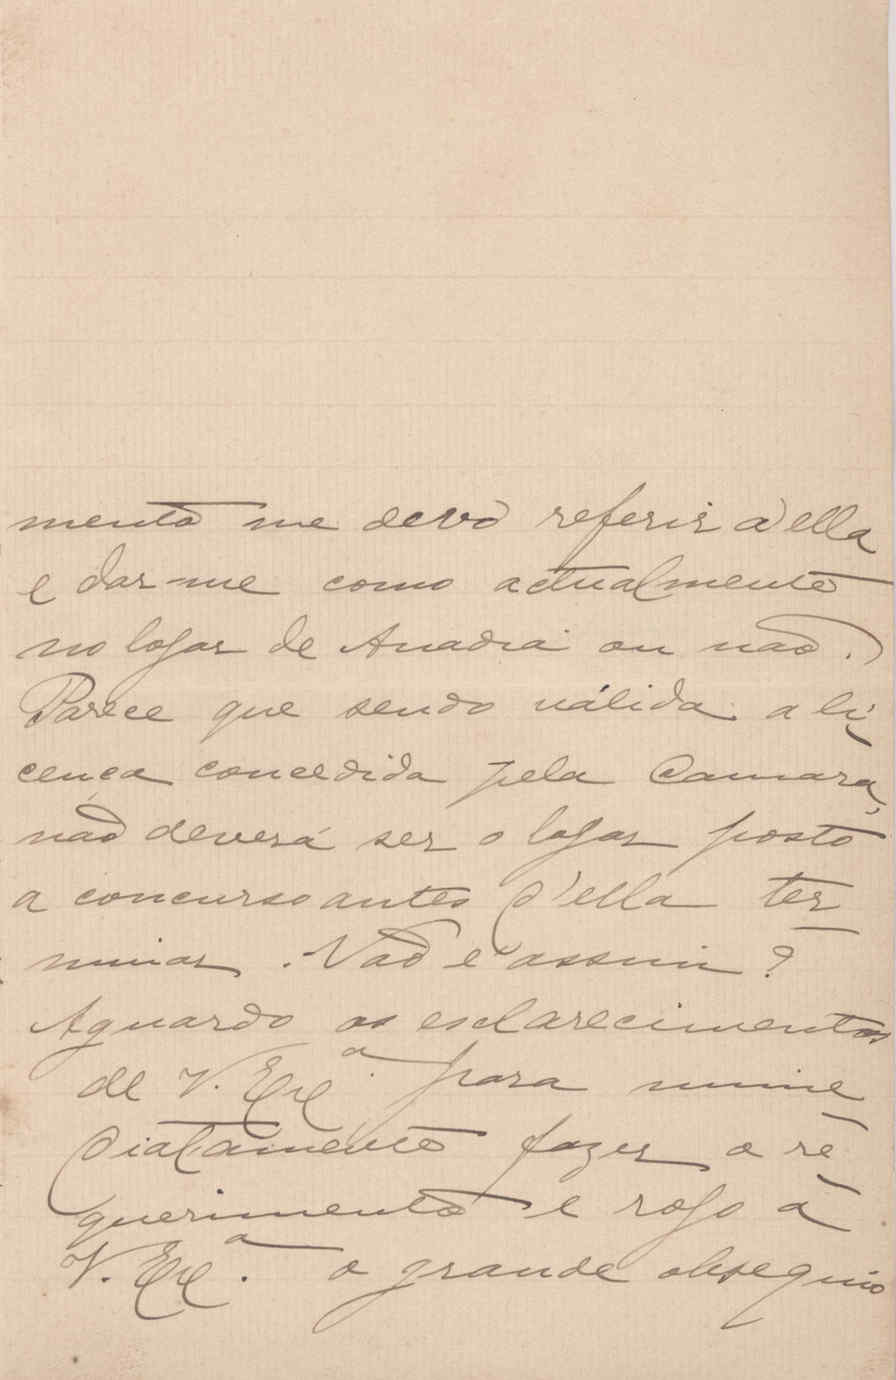 mento me devo referir a ella
e dar-me como actualmente
no logar de Anadia ou não.
Parece que sendo válida a li-
cença concedida pela Camara,
não deverá ser o logar posto
a concurso antes d'ella ter-
minar. Não é assim?
Aguardo os esclarecimentos
de V. Ex.ª para imme-
diatamente fazer o re-
querimento e rogo a
V. Ex.ª o grande obsequio